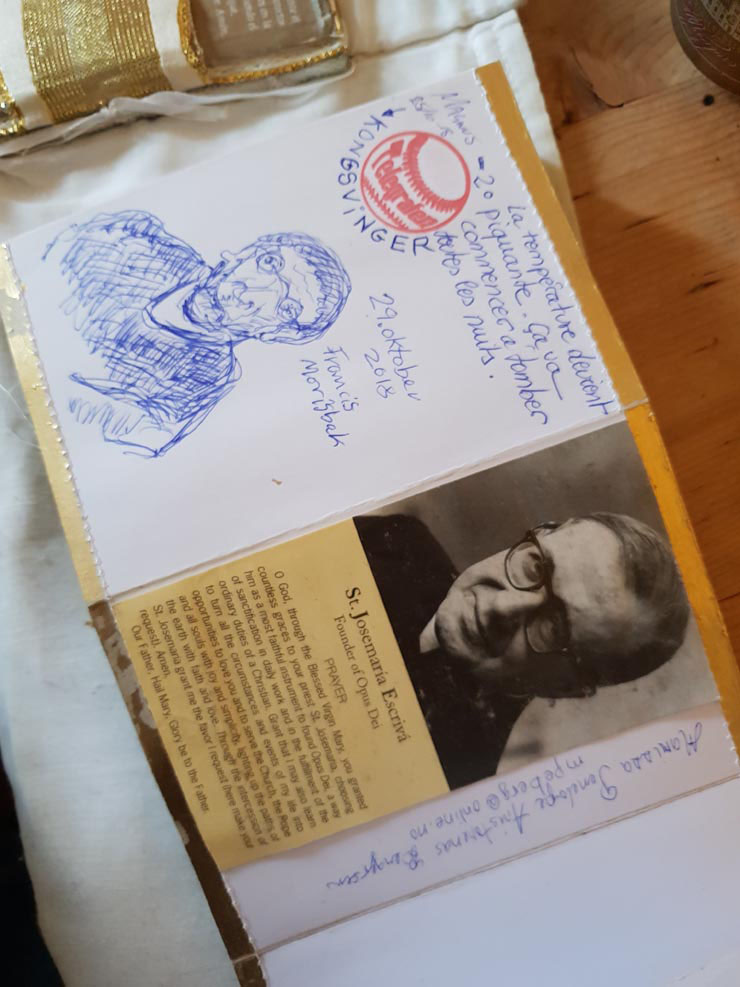 La température devient
- 20 piquante. Ça va
commencer a tomber
toutes les nuits.
MINUS
KONGSVINGER
29. oktober
2018
Francis
Morisbak
St. Josemaría Escrivá
Founder of Opus Dei
PRAYER
O God, through the Blessed Virgin Mary, you granted
countless graces to your priest St. Josemaria, choosing
him as a most faithful instrument to found Opus Dei, a way
of sanctification in daily work and in the fulfillment of the
ordinary duties of a Christian. Grant that I may also learn
to turn all the circumstances and events of my life into
opportunities to love you and to serve the Church, the Pope
and all souls with joy and simplicity, lighting up the paths of
the earth with faith and love. Through the intercession of
St. Josemaria grant me the favor I request (here make your
request). Amen.
Our Father, Hail Mary, Glory be to the Father.
Penelope
mpeberg@online.no